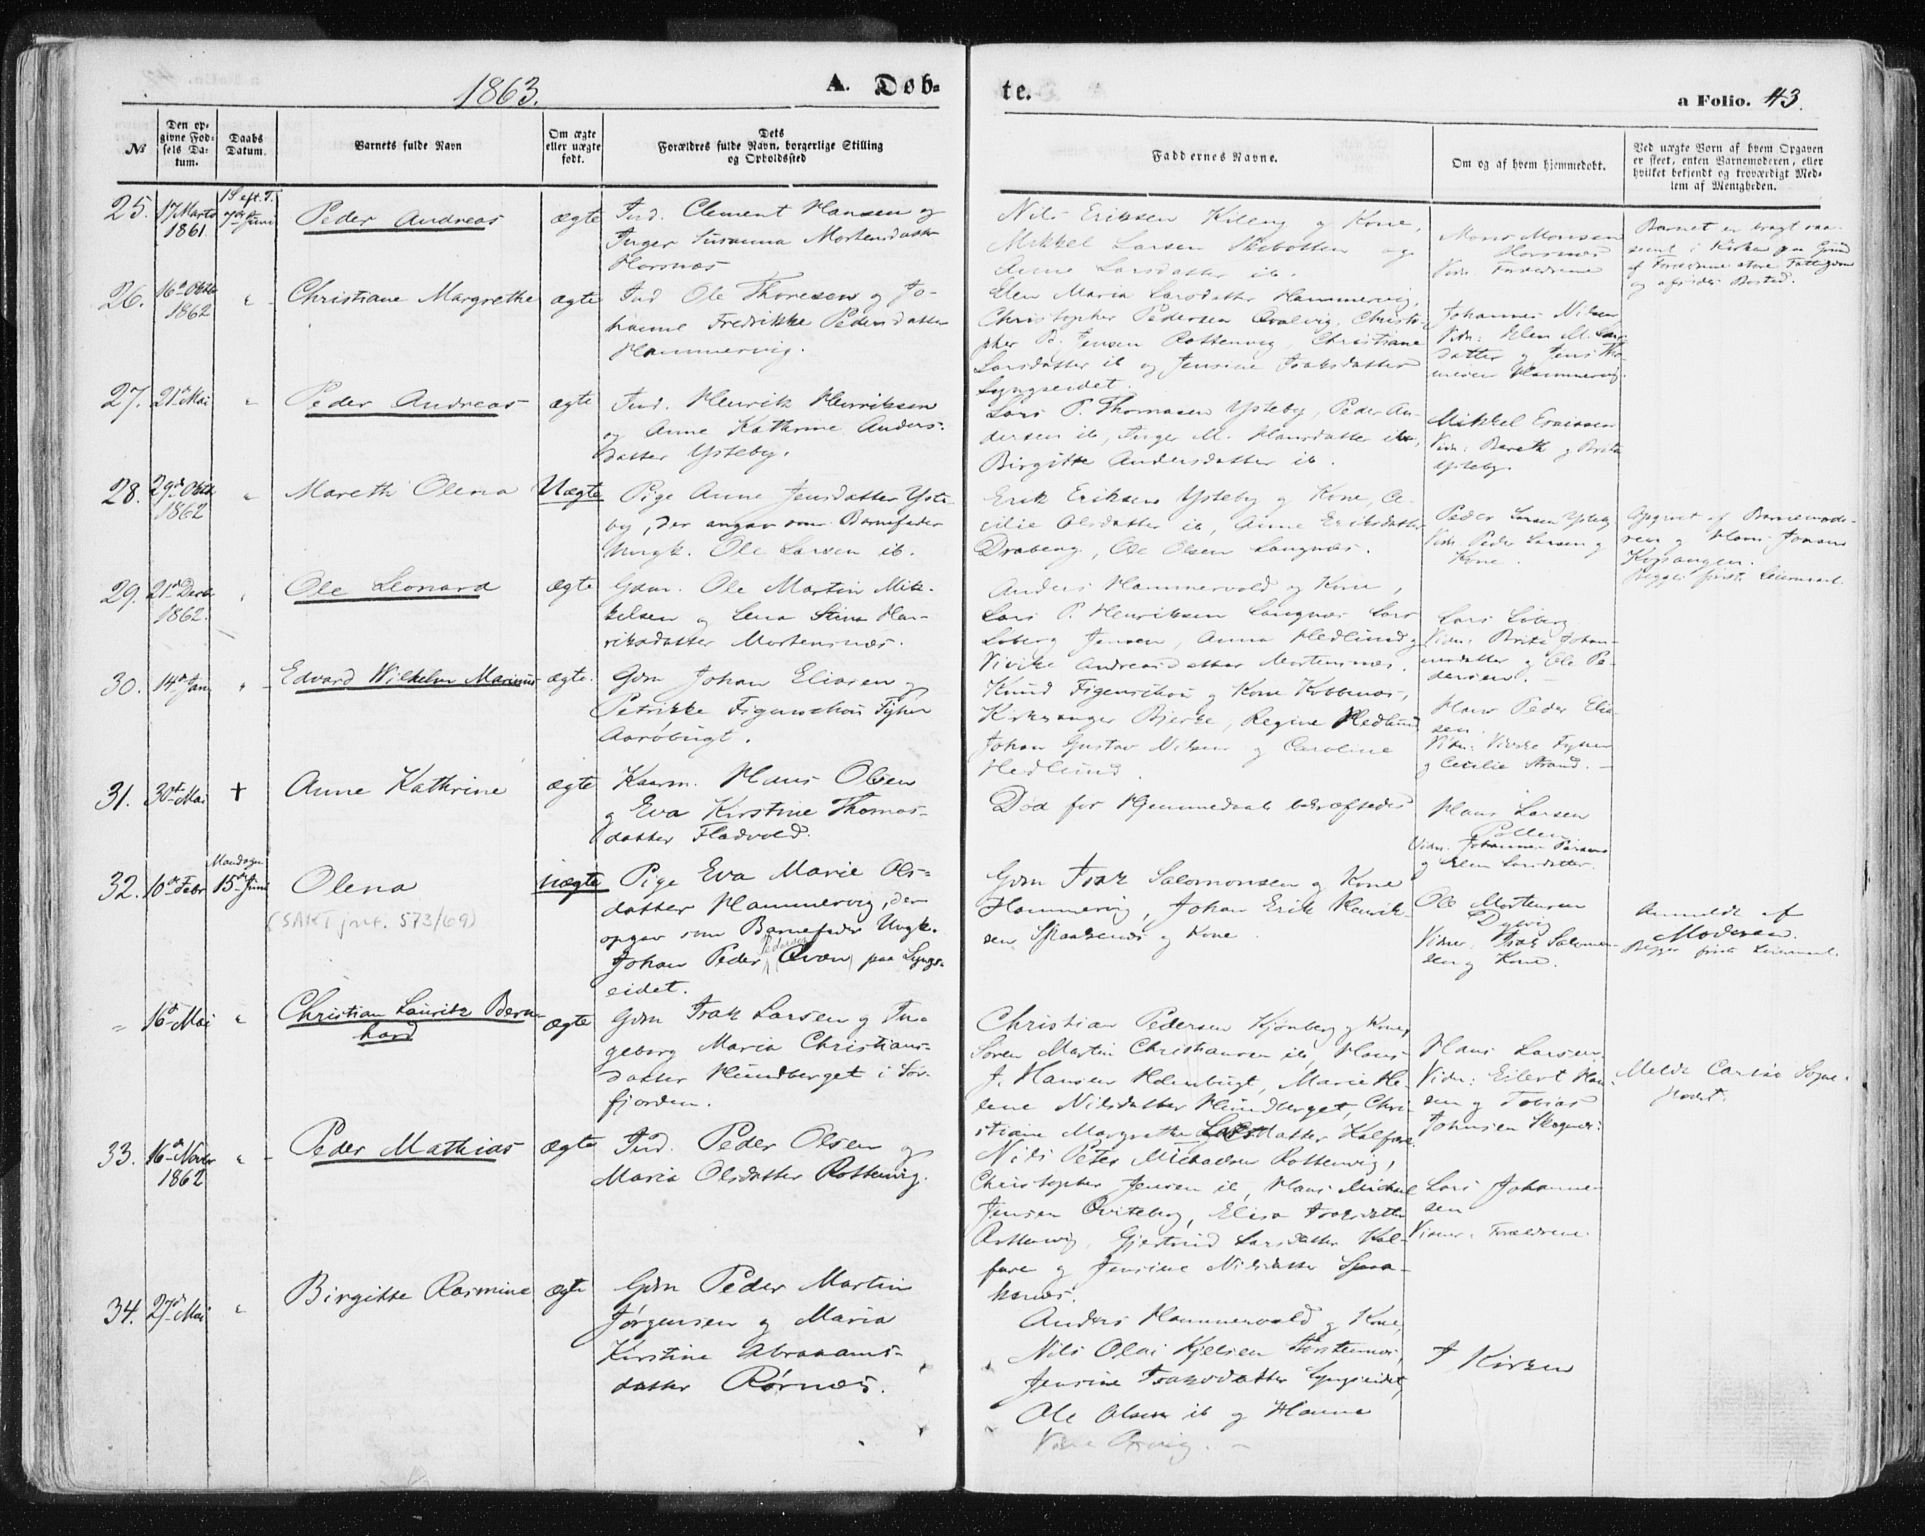 1863.
A. Døb-
te.
a Folio. 43.
№
Den op-
givne Fød-
sels Da-
tum.
Daabs
Datum.
Barnets fulde Navn
Om ægte
eller uægte
født.
Dets
Forældres fulde Navn, borgerlige Stilling
og Opholdssted
Faddernes Navne.
Om og af hvem hjemmedøbt.
Ved uægte Børn af hvem Opgaven
er skeet, enten Barnemoderen, eller
hvilket bekjendt og troværdigt Med-
lem af Menigheden.
25. 17 Marts 1861. 1 S eft. T. 7de Juni
Peder Andreas
ægte
Ind. Clement Hansen og
Inger Susanna Mortensdatter
Horsnæs
Nils Eriksen Kileng og Kone,
Mikkel Larsen Skibotten og
Anne Larsdatter ib.
Mons Monsen
Horsnæs
Vidn. Forældrene
Barnet er bragt saa
seent i Kirken paa Grund
af Forældrene store Fattigdom
og afsides Bosted.
26. 16de Oktb 1862 "
Christiane Margrethe
ægte
Ind Ole Thoresen og Jo-
hanne Fredrikke Pedersdatter
Hammervig.
Elen Maria Larsdatter Hammervig,
Christopher Pedersen Qvalvig, Christo-
pher P. Jensen Rottenvig, Christiane
Larsdatter ib og Jensine Isaksdatter
Lyngseidet.
Johannes Nilsen
Vidn: Elen M. Lars-
datter og Jens Tho-
mesen Hammervig.
27. 21de Mai "
Peder Andreas
ægte
Ind. Henrik Henriksen
og Anne Kathrine Anders-
datter Ysteby.
Lars P. Thomasen Ysteby, Peder An-
dersen ib, Inger M. Hansdatter ib,
Birgitte Andersdatter ib.
Mikkel
Vidn: Bereth og Brita
Ysteby.
28. 29de Oktb 1862 "
Mareth Olena
Uægte
Pige Anne Jensdatter Yste-
by, der angav som Barnefader
Ungk. Ole Larsen ib.
Erik Eriksen Ysteby og Kone, Ce-
cilie Olsdatter ib, Anne Eriksdatter
Drabeng, Ole Olsen Langnæs.
Peder Larsen Ysteby
Vidn. Peder Larsen og
Kone.
Opgivet af Barnemode-
ren og Hans Jonsen
Kopangen.
Begges første Leiermaal.
29. 21de Decb 1862. "
Ole Leonard
ægte
Gdm. Ole Martin Mik-
kelsen og Lena Stina Hen-
riksdatter Mortensnæs.
Anders Hammervold og Kone,
Lars P. Henriksen Langnæs Lars
Loberg Jensen, Anna Hedlund og
Vivike Andreasdatter Mortensnæs.
Lars Loberg
Vidn: Brita Johan-
nesdatter og Ole Pe-
dersen.
30. 14de Jan "
Edvard Wilhelm Marinius
ægte.
Gdm Johan Eliasen og
Petrikke Figenschou Tyhen
Aarøbugt.
Knud Figenschou og Kone Kobbenæs,
Kirkesanger Bjerke, Regine Hedlund
Johan Gustav Nilsen og Caroline
Hedlund.
Hans Peder Elia-
sen.
og Cecilie Strand.
31. 30te Mai +
Anne Kathrine
ægte
Kaarm. Hans Olsen
og Eva Kirstine Thomas-
datter Fladvold.
Død før Hjemmedaab bekræftedes
Hans Larsen
Pollen.
og Elen Larsdatter.
32. 10de Febr Mandagen 15de Juni
Olena
(SAKT jnr. 573/69)
uægte
Pige Eva Marie Ols-
datter Hammervig, der
opgav som Barnefader Ungk.
Johan Peder (Pedersen) Qvæn paa Lyngs-
eidet.
Gdm Isak Salomonsen og Kone
Hammervig, Johan Erik Henrik-
sen Spaakenæs og Kone.
Ole Mortensen
Dybvig
Vidner: Isak Salomon-
sen og Kone.
Anmeldt af
Moderen.
Begges første Leiermaal.
" 16de Mai "
Christian Lauritz Bern-
hard
ægte
Gdm Isak Larsen og In-
geborg Maria Christians-
datter Hundberget i Sør-
fjorden.
Christian Pedersen Hjönberg og Kone,
Sören Martin Christiansen ib, Hans
J. Hansen Holmbugt, Marie He-
lene Nilsdatter Hundberget, Chri-
stiane Margrethe Larsdatter Kalfare
Hans Larsen.
Vidn: Eilert Han-
sen og Tobias
Johnsen Skognæs.
Meldt Carlsø Sogne-
præst.
33. 16de Novbr 1862 "
Peder Mathias
ægte
Ind. Peder Olsen og
Maria Olsdatter Rottenvig.
Nils Peter Michaelsen Rottenvig,
Christopher Jensen ib, Hans Michael
Jensen Qviteberg, Elisa Isaksdatter
Rottenvig, Gjertrud Larsdatter Kal-
fare og Jensine Nilsdatter Spaa-
kenæs.
Lars Johannes-
sen
Vidner: Forældrene.
34. 27de Mai "
Birgitte Rasmine
ægte
Gdm Peder Martin
Jørgensen og Maria
Kirstine Abrahams-
datter Rørnæs.
Anders Hammervold og Kone,
Nils Olai Kjelsen Storstennæs,
Jensine Isaksdatter Lyngseidet,
Ole Olsen ib og Hanna
I Kirken